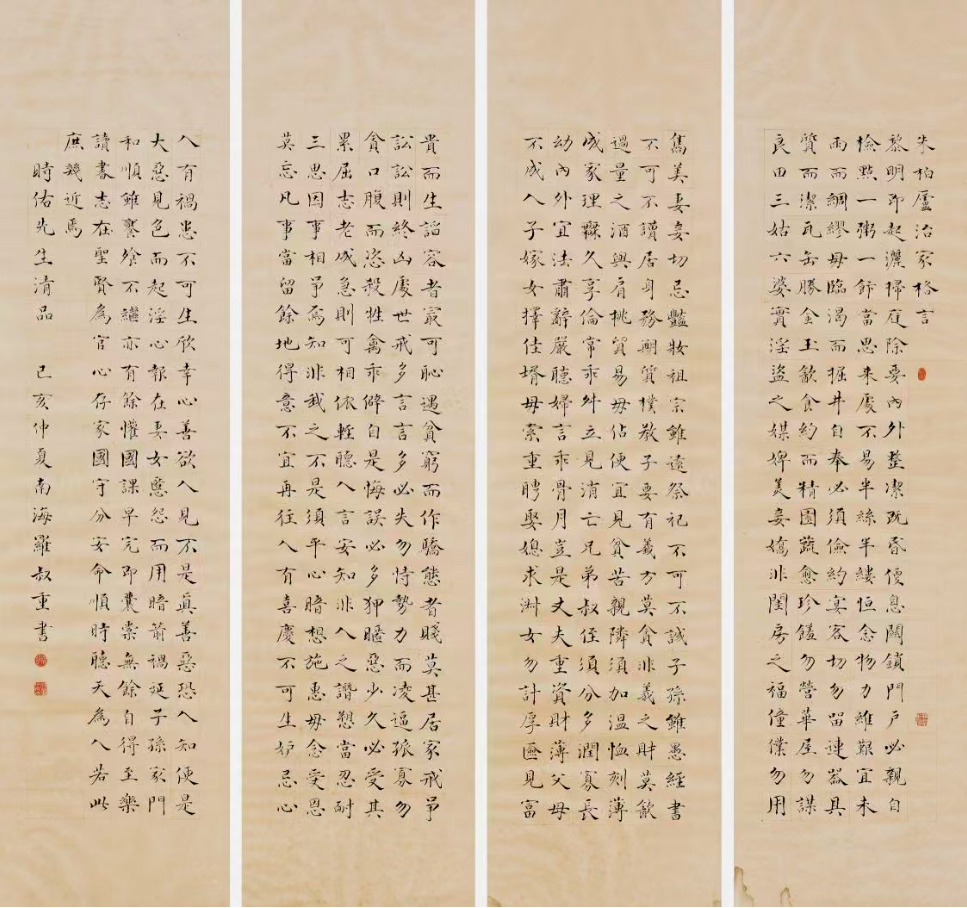 朱柏廬治家格言
黎明即起灑掃庭除要內外整潔既昏便息關鎖門戶必親自
檢點一粥一飯當思來處不易半絲半縷恒念物力維艱宜未
雨而綢繆毋臨渴而掘井自奉必須儉約宴客切勿留連器具
質而潔瓦缶勝金玉飲食約而精園蔬愈珍饈勿營華屋勿謀
良田三姑六婆實淫盜之媒婢美妾嬌非閨房之福僮僕勿用
雋美妻妾切忌豔妝祖宗雖遠祭祀不可不誠子孫雖愚經書
不可不讀居身務期質樸教子要有義方莫貪非義之財莫飲
過量之酒與肩挑貿易毋佔便宜見貧苦親隣須加溫恤刻薄
成家理無久享倫常乖舛立見消亡兄弟叔侄須分多潤寡長
幼內外宜法肅辭嚴聽婦言乖骨肉豈是丈夫重資財薄父母
不成人子嫁女擇佳壻毋索重聘娶媳求淑女勿計厚奩見富
貴而生諂容者最可恥遇貧窮而作驕態者賤莫甚居家戒爭
訟訟則終凶處世戒多言言多必失勿恃勢力而凌逼孤寡勿
貪口腹而恣殺牲禽乖僻自是悔誤必多狎暱惡少久必受其
累屈志老成急則可相依輕聽人言安知非人之譖愬當忍耐
三思因事相爭焉知非我之不是須平心暗想施惠毋念受恩
莫忘凡事當留餘地得意不宜再往人有喜慶不可生妒忌心
人有禍患不可生欣幸心善欲人見不是真善惡恐人知便是
大惡見色而起淫心報在妻女慝怨而用暗箭禍延子孫家門
和順雖饔飧不繼亦有餘懽國課早完即囊橐無餘自得至樂
讀書志在聖賢為官心存家國守分安命順時聽天為人若此
庶幾近焉
時佑先生清品 己亥仲夏南海羅叔重書